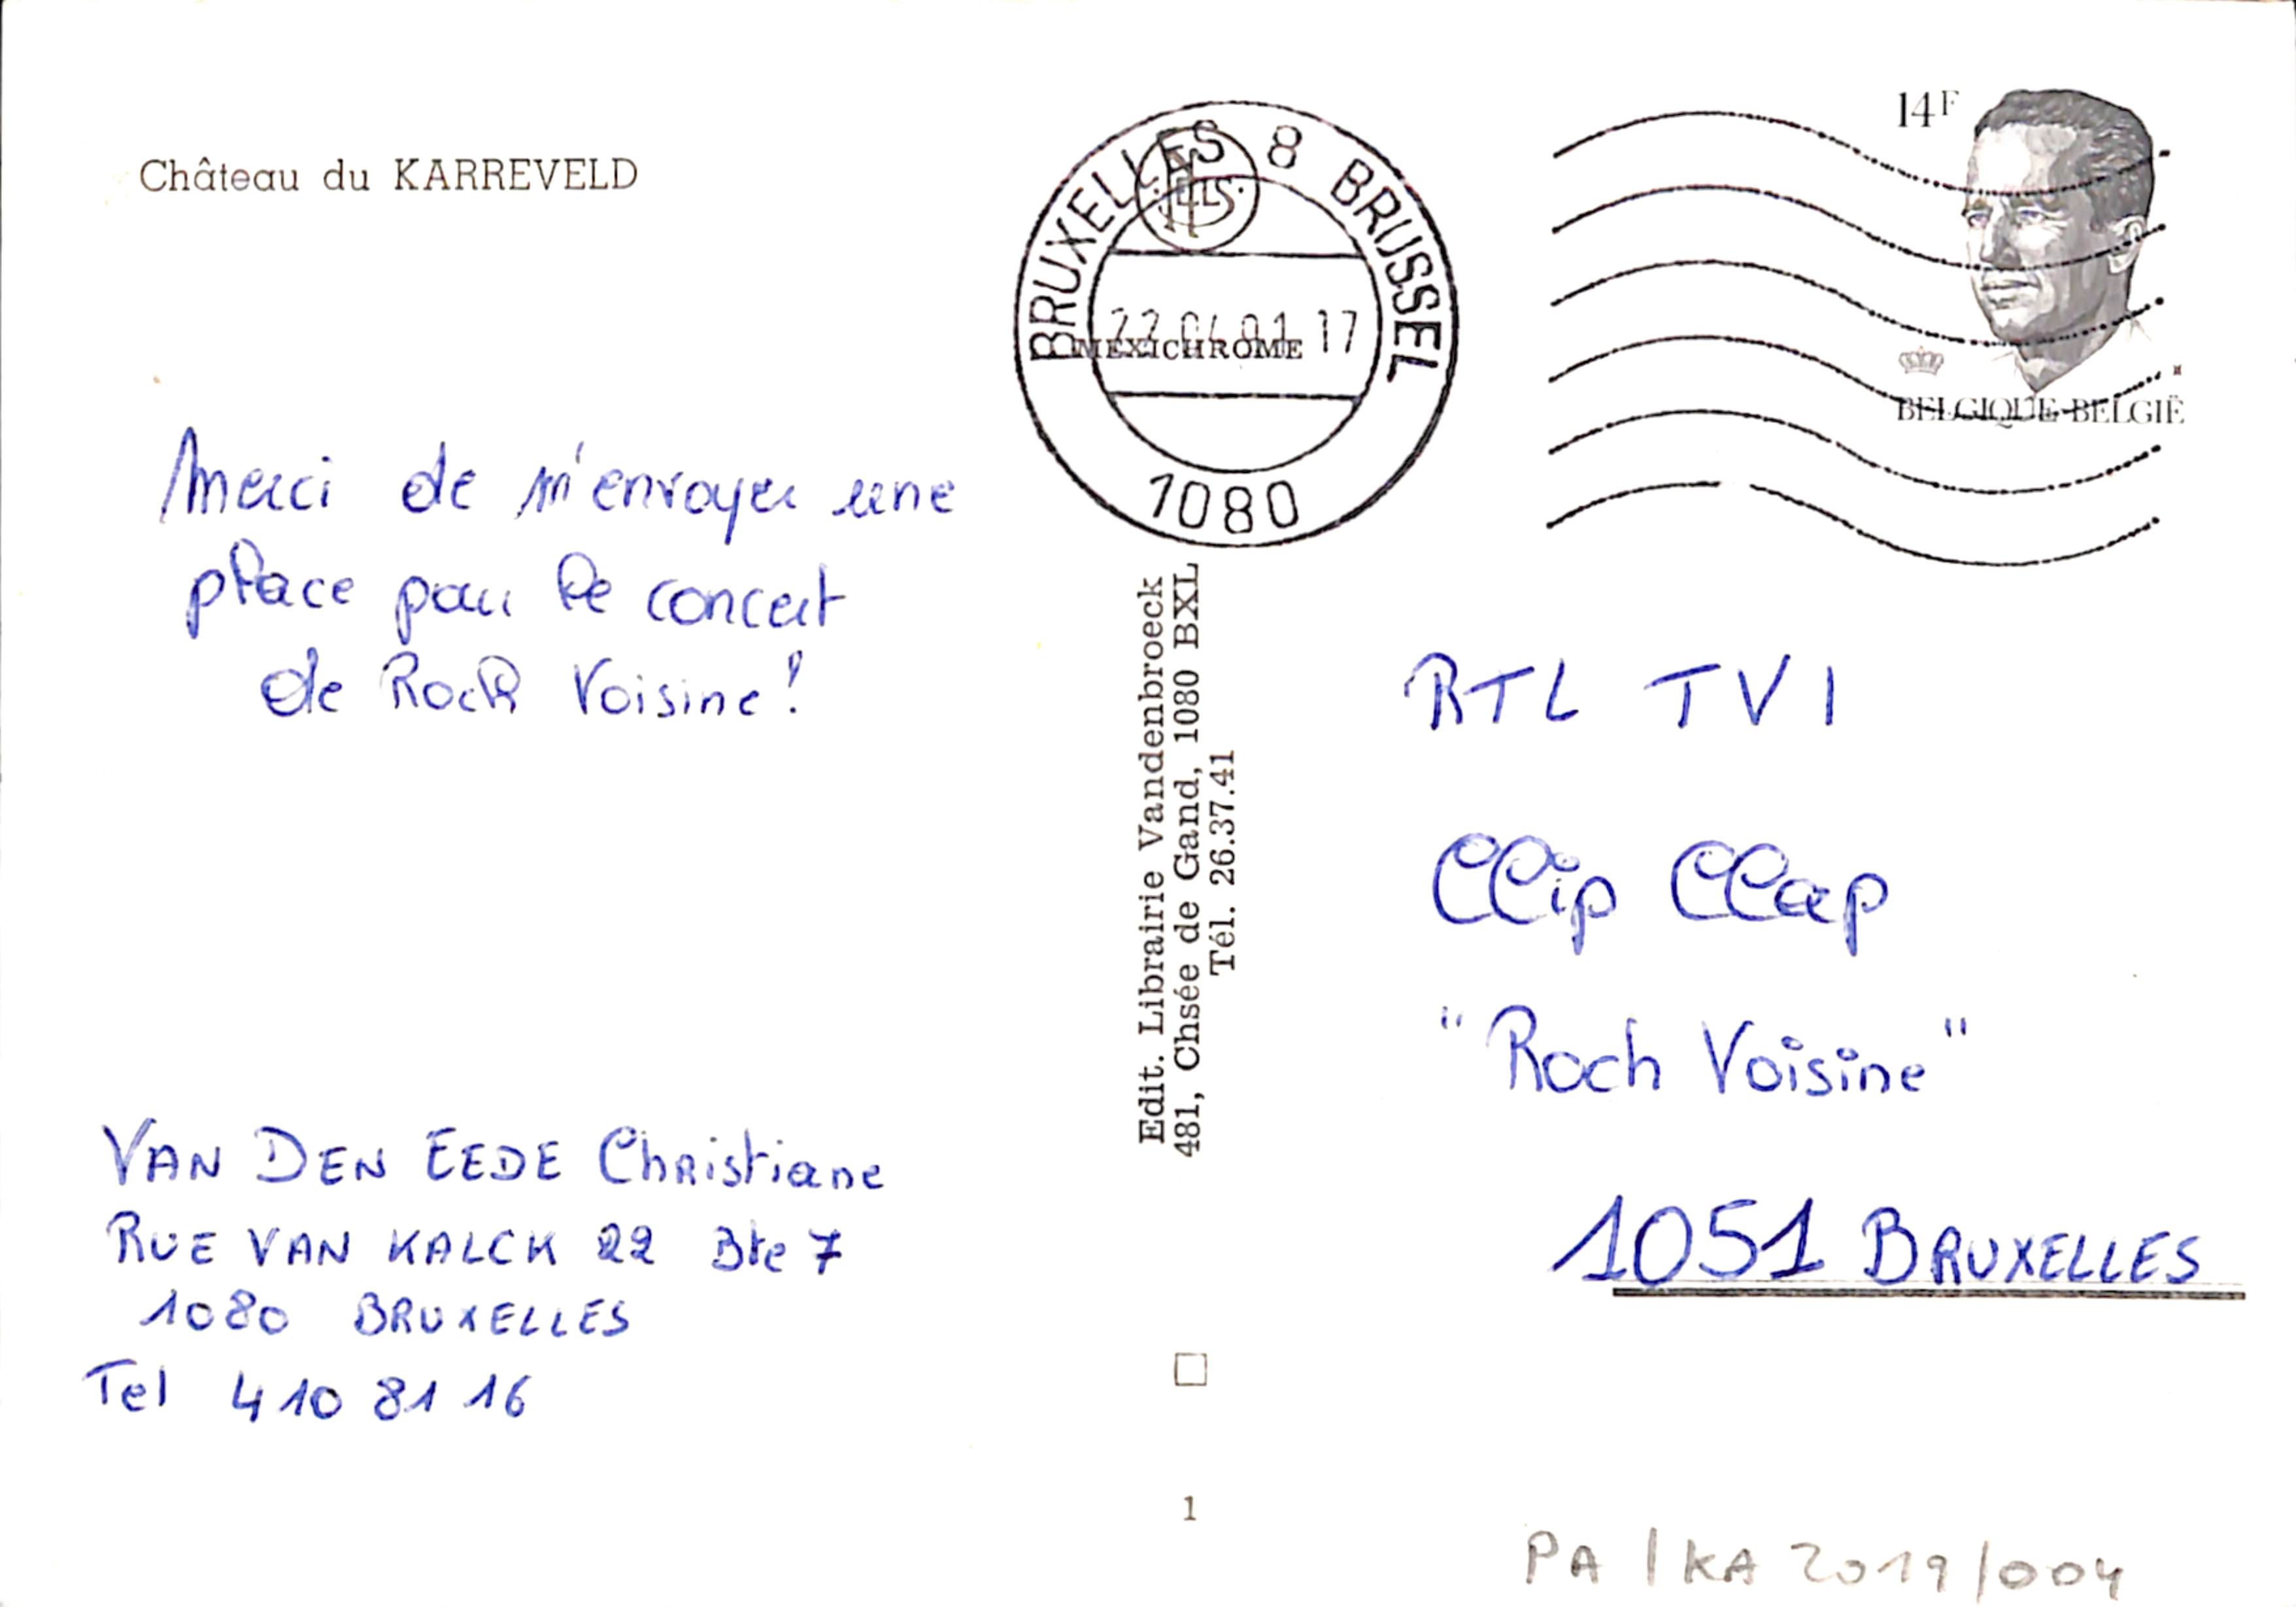 Château du KARREVELD
Merci de m'envoyer une
place pour le concert
de Roch Voisine !
VAN DEN EEDE Christiane
RUE VAN KALCK 22 Bte 7
1080 BRUXELLES
Tel 410 81 16
BRUXELLES 8 BRUSSEL
17
MEXICHROME
1080
Edit. Librairie Vandenbroeck
481, Chsée de Gand, 1080 BXL
Tél. 26.37.41
1
14F
BELGIQUE-BELGIË
RTL TVI
Clip Clap
"Roch Voisine"
1051 BRUXELLES
PA/KA 2019/004